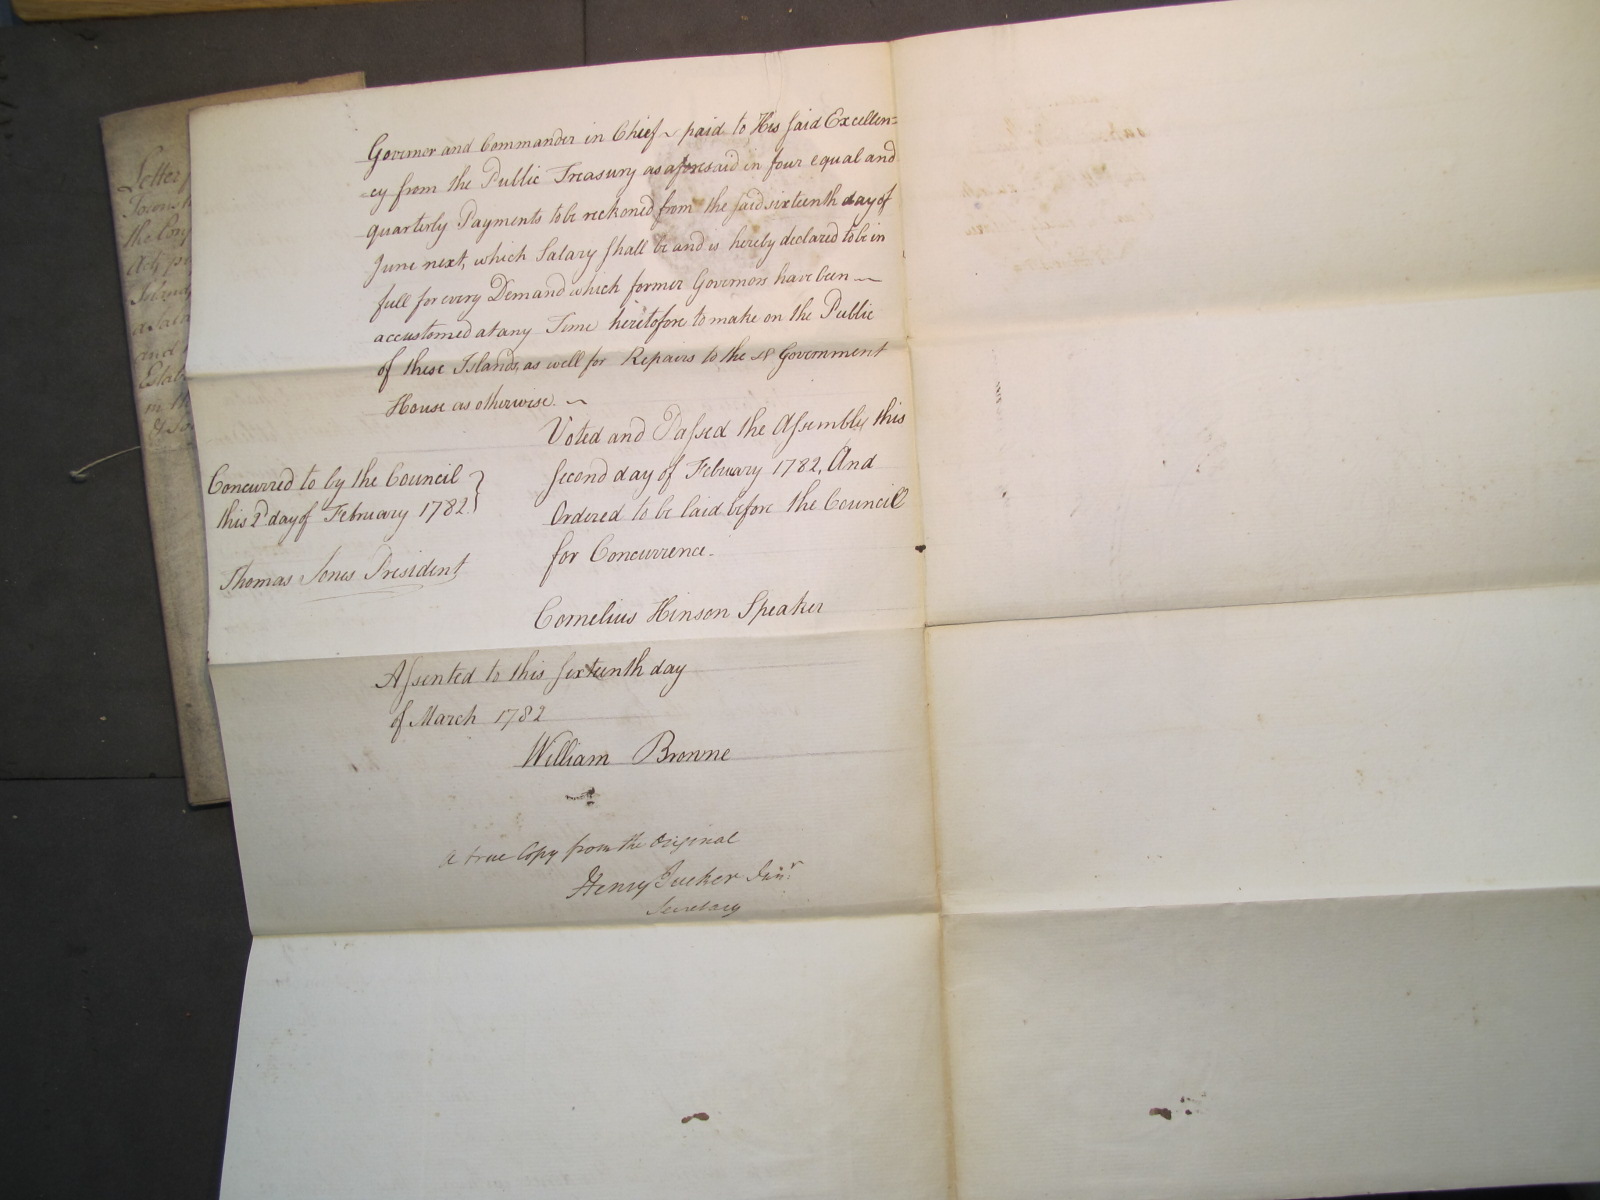 Governor and Commander in Chief ~ paid to His said Excellen=
=cy from the Public Treasury as aforesaid in four equal and
quarterly Payments to be reckoned from the said sixteenth day of
June next, which Salary shall be and is hereby declared to be in
full for every Demand which former Governors have been ~
accustomed at any Time heretofore to make on the Public
of these Islands, as well for Repairs to the Government
House as otherwise. ~
Voted and Passed the Assembly this
second day of February 1782, And
Ordered to be laid before the Council
for Concurrence.
Cornelius Hinson Speaker
Concurred to by the Council
this 2d day of February 1782.
Thomas Jones President
Assented to this sixteenth day
of March 1782
William Browne
A true Copy from the Original
Henry Tucker Junr.
Secretary
Letter
Town
the